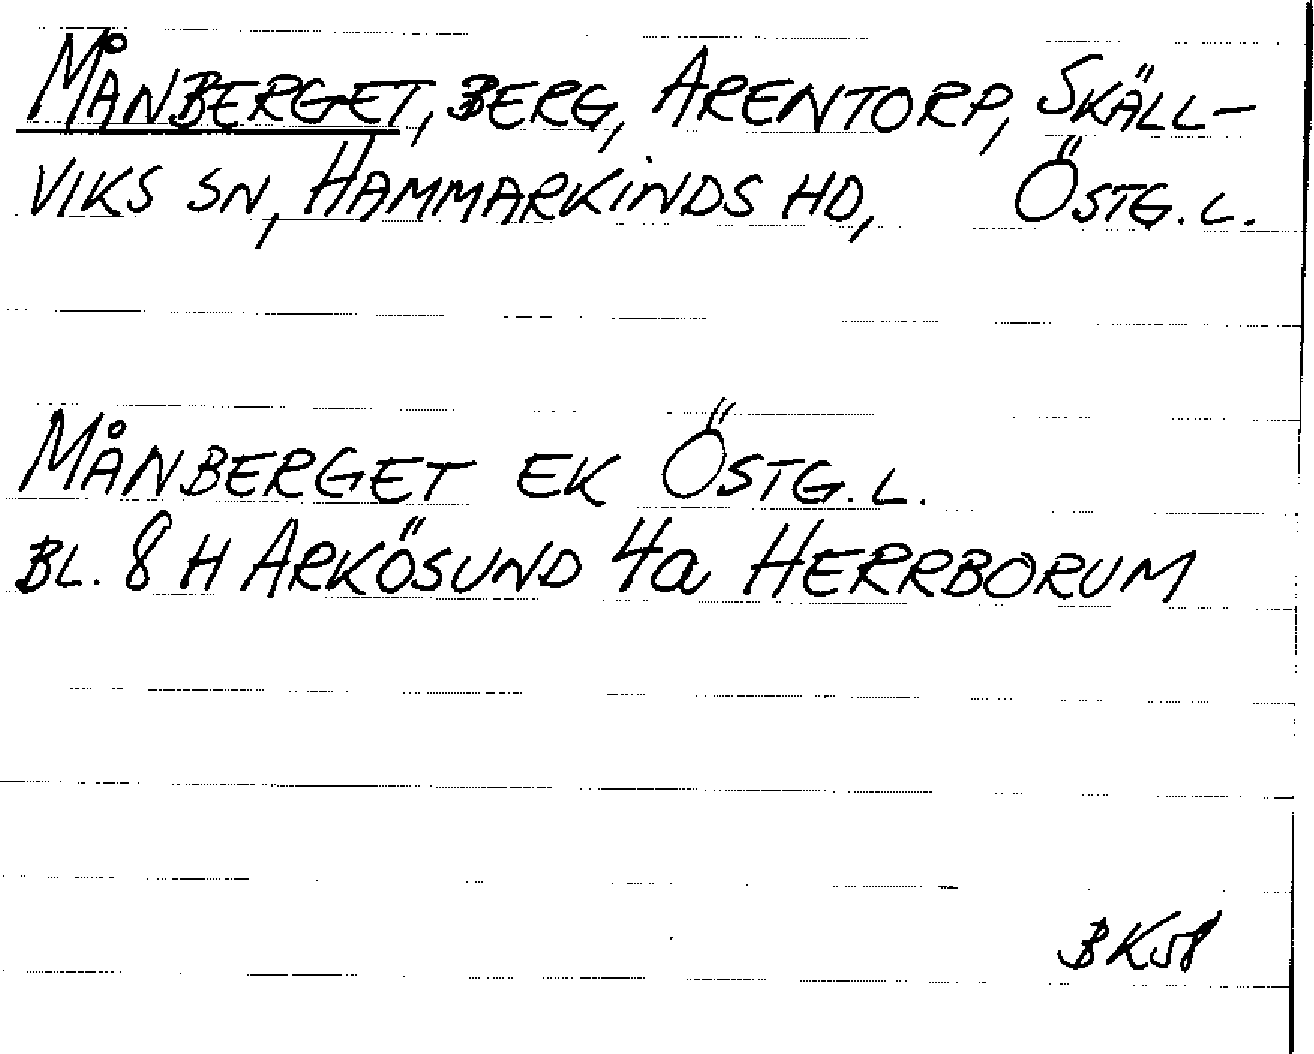 MÅNBERGET, BERG, ARENTORP, SKÄLL-
VIKS SN, HAMMARKINDS HD, ÖSTG. L.
MÅNBERGET EK ÖSTG. L.
BL. 8 H ARKÖSUND 4a HERRBORUM